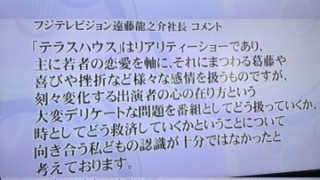 フジテレビジョン遠藤龍之介社長 コメント
「テラスハウス」はリアリティーショーであり、
主に若者の恋愛を軸に、それにまつわる葛藤や
喜びや挫折など様々な感情を扱うものですが、
刻々変化する出演者の心の在り方という
大変デリケートな問題を番組としてどう扱っていくか、
時としてどう救済していくかということについて
向き合う私どもの認識が十分ではなかったと
考えております。